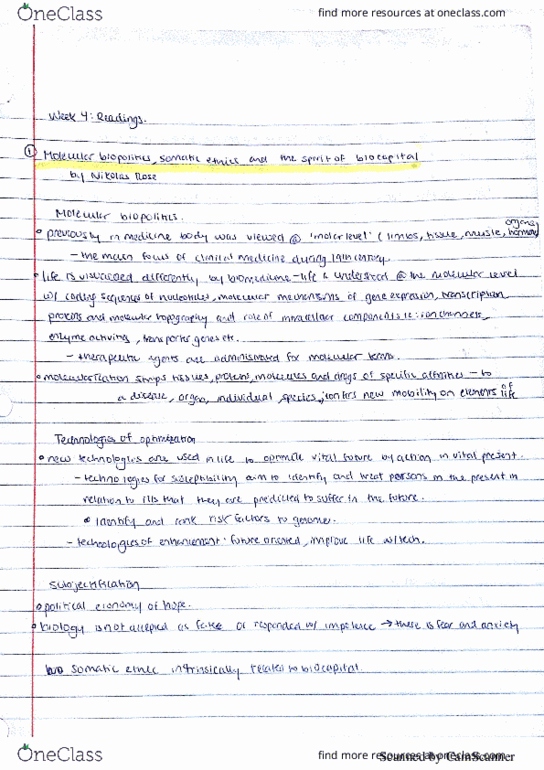 OneClass find more resources at oneclass.com
Week 4: Readings.
① Molecular biopolitics, somatic ethics and the spirit of biocapital
by Nikolas Rose
Molecular biopolitics.
• previously in medicine body was viewed @ 'molar level' (limbs, tissue, muscle, organs,
- the main focus of clinical medicine during 19th century.
• life is visualized differently by biomedicine - life is understood @ the molecular level
w/ coding sequences of nucleotides, molecular mechanisms of gene expression, transcription
proteins and molecular topography and role of intracellular components i.e: ion channels,
enzyme activities, transporter genes etc.
- therapeutic agents are administrated for molecular
• molecularization strips tissues, proteins, molecules and drugs of specific affinities - to
a disease, organ, individual, species, confers new mobility on elements of life
Technologies of optimization
• new technologies are used in life to optimize vital future by action in vital present.
- technologies for susceptibility aim to identify and treat persons in the present in
relation to ills that they are predicted to suffer in the future.
• identify and rank risk factors to genomes.
- technologies of enhancement: future oriented, improve life w/ tech.
Subjectification
• political economy of hope.
• biology is not accepted as fate or responded w/ impotence → there is fear and anxiety
somatic ethic intrinsically related to biocapital.
OneClass find more resources at oneclass.com
Scanned by CamScanner